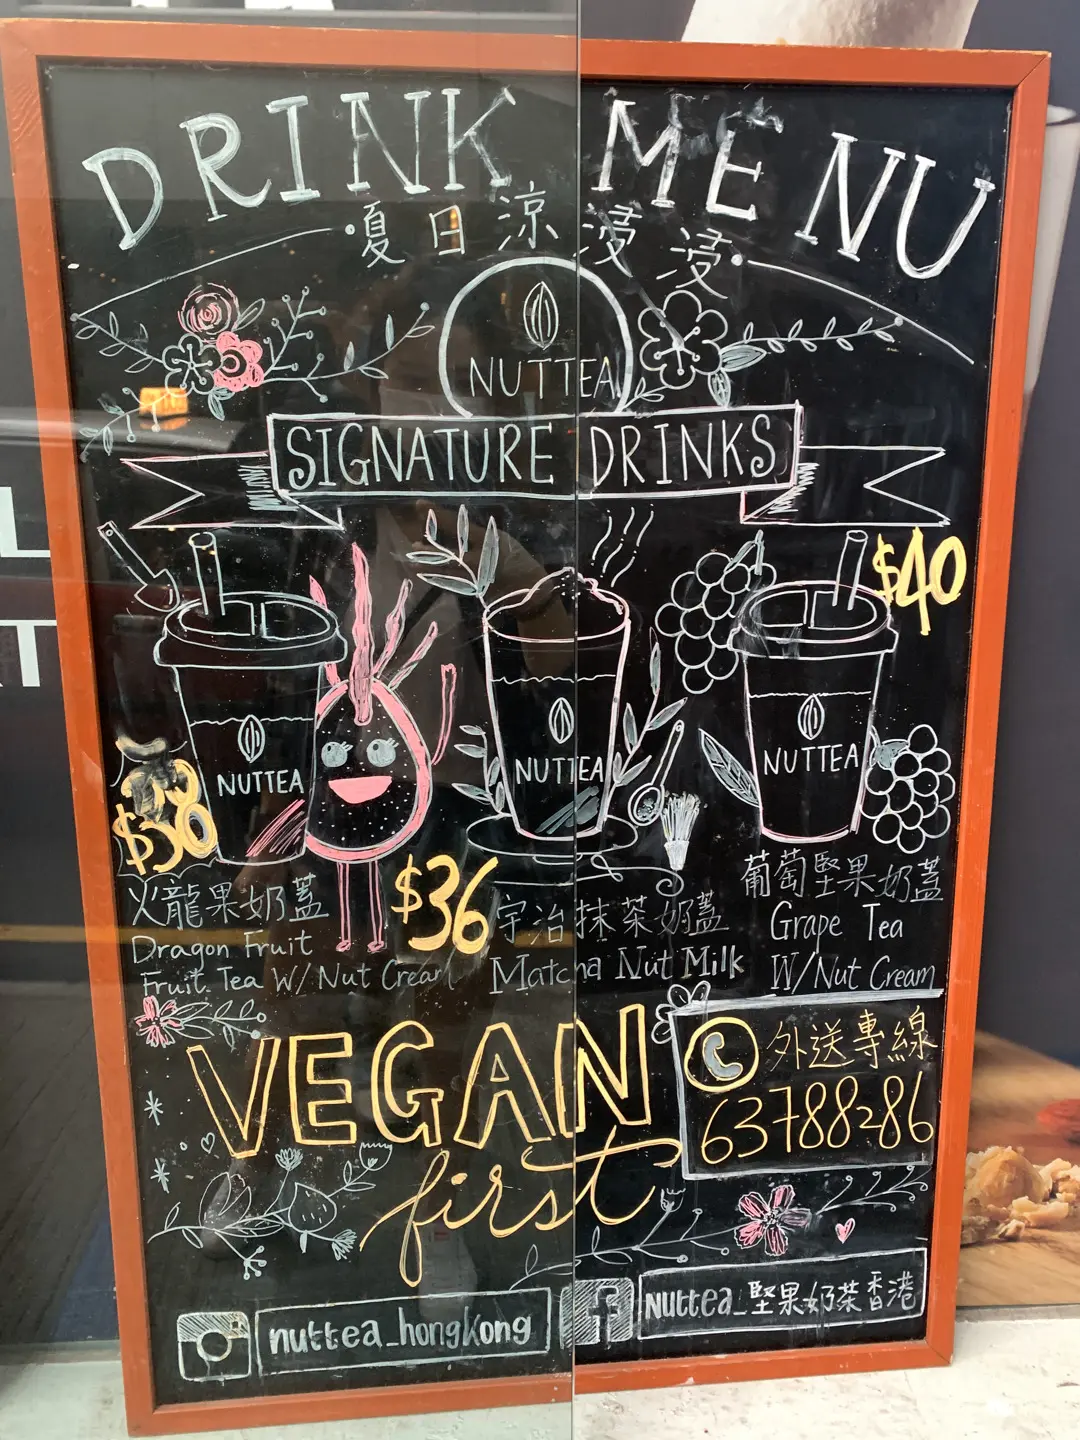 DRINK MENU
夏日涼浸浸
NUTTEA
SIGNATURE DRINKS
$40
NUTTEA
NUTTEA
NUTTEA
$38
火龍果奶蓋
Dragon Fruit
Fruit Tea W/ Nut Cream
$36
宇治抹茶奶蓋
Matcha Nut Milk
葡萄堅果奶蓋
Grape Tea
W/Nut Cream
VEGAN
first
外送專線
63788286
nuttea_hongkong
f
nuttea_堅果奶茶香港